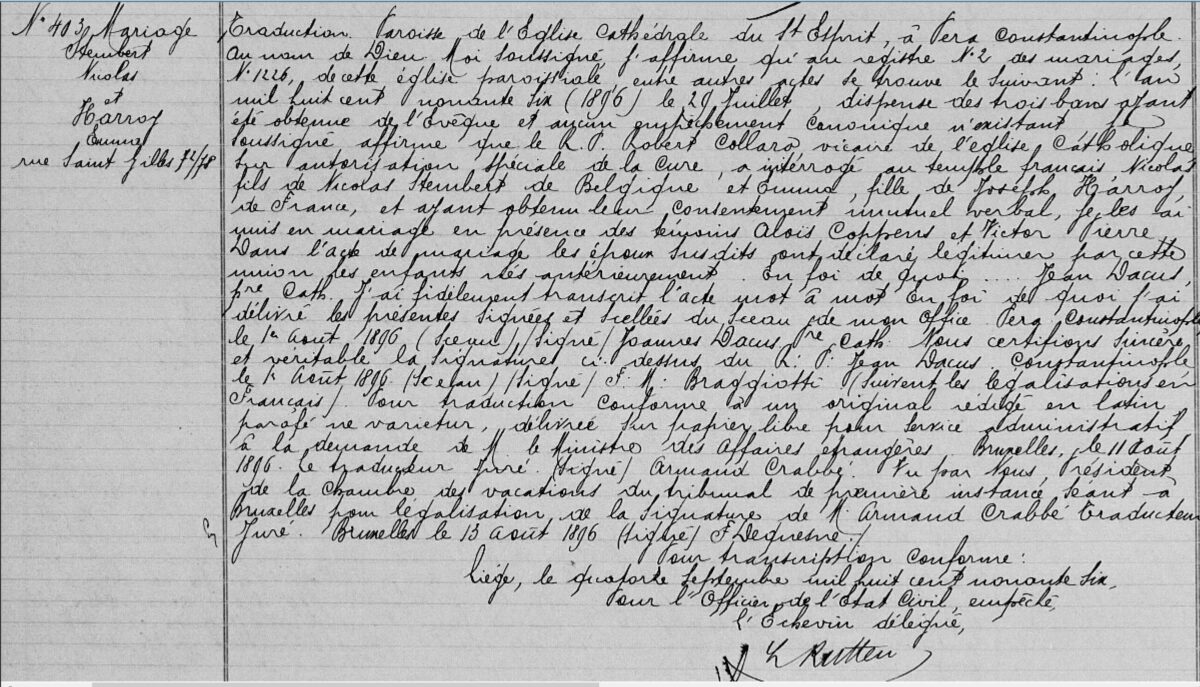 N° 403 Mariage
Stembert
Nicolas
et
Harroy
Emma
rue Saint Gilles 72/78
Traduction. Paroisse de l'Eglise Cathédrale du St Esprit, à Pera Constantinople.
Au nom de Dieu. Moi soussigné, j'affirme qu'au registre N°2 des mariages,
N° 1226, de cette église paroissiale, entre autres actes se trouve le suivant: l'an
mil huit cent nonante six (1896) le 29 Juillet, dispense des trois bans ayant
été obtenue de l'Evêque et aucun empêchement canonique n'existant
soussigné affirme que le R. P. Robert Collaro vicaire de l'église Catholique
sur autorisation spéciale de la Cure, a intérrogé au temple français Nicolas
fils de Nicolas Stembert de Belgique et Emma, fille de Joseph Harroy,
de France, et ayant obtenu leur consentement mutuel verbal, je les ai
unis en mariage en présence des témoins Alois Coppens et Victor Pierre
Dans l'acte de mariage les époux susdits ont déclaré légitimer par cette
union des enfants nés antérieurement. En foi de quoi .... Jean Dacus,
pre Cath. J'ai fidèlement transcrit l'acte mot à mot en foi de quoi j'ai
délivré les présentes signées et scellées du sceau de mon Office. Pera Constantinople
le 1er Août 1896 (Sceau) (Signé) Joannes Dacus pre Cath. Nous certifions sincère
et véritable la signature ci-dessus du R. P. Jean Dacus. Constantinople
le 1r Août 1896 (Sceau) (Signé) F. M. Braggiotti (Suivent les légalisations en
Français). Pour traduction conforme à un original rédigé en latin
parafé ne varietur, délivrée sur papier libre pour service administratif
à la demande de M. le Ministre des Affaires étrangères. Bruxelles, le 11 Août
1896. Le traducteur juré. (Signé) Armand Crabbé. Vu par Nous, Président
de la Chambre des vacations du tribunal de première instance séant à
Bruxelles pour légalisation de la signature de M. Armand Crabbé traducteur
Juré. Bruxelles le 13 Août 1896 (Signé) F Dequesne./
Pour transcription conforme:
Liége, le quatorze Septembre mil huit cent nonante six,
Pour l'Officier de l'Etat Civil, empêché,
l'Echevin délégué,
L Rutten